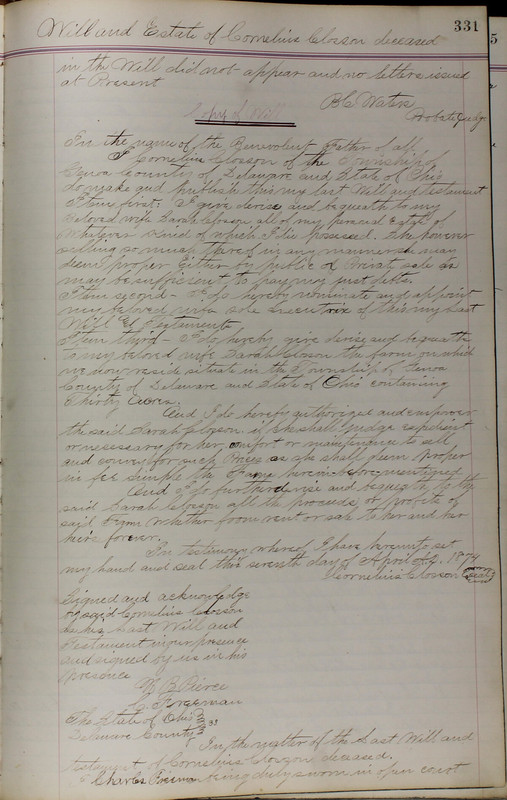 331
Will and Estate of Cornelius Closson deceased
in the Will did not appear and no letters issued
at Present
B.C. Waters
Probate Judge
Copy of Will
In the name of the Benevolent Father of all
I Cornelius Closson of the Township of
Genoa County of Delaware and State of Ohio
do make and publish this my last Will and testament
Item first. I give devise and bequeath to my
beloved wife Sarah Closson all of my personal Estate of
Whatever kind of which I die possessed. She however
selling so much thereof in any manner she may
deem proper Either by public or Private sale as
may be sufficient to pay my just debts.
Item second - I do hereby nominate and appoint
my beloved wife sole executrix of this my Last
Will & Testament
Item third - I do hereby give devise and bequeath
to my beloved wife Sarah Closson the farm on which
we now reside situate in the Township of Genoa
County of Delaware and State of Ohio containing
Thirty Acres.
And I do hereby authorize and empower
the said Sarah Closson if she shall judge expedient
or necessary for her comfort or maintinance to sell
and convey for such Prices as she shall deem Proper
in fee simple the Farm hereinbefore mentioned
And I do further devise and bequeath to the
said Sarah Closson all the proceeds or profits of
said Farm Whether from rent or sale to her and her
heirs forever.
In testimony whereof I have hereunto set
my hand and seal this seventh day of April A.D. 1874
Cornelius Closson seal
Signed and acknowledge
by said Cornelius Closson
as his Last Will and
Testament in our presence
and signed by us in his
Presence
B Peirce
C. Freeman
The State of Ohio
Delaware County ss
In the matter of the Last Will and
testament of Cornelius Closson deceased.
Charles Freeman being duly sworn in open court